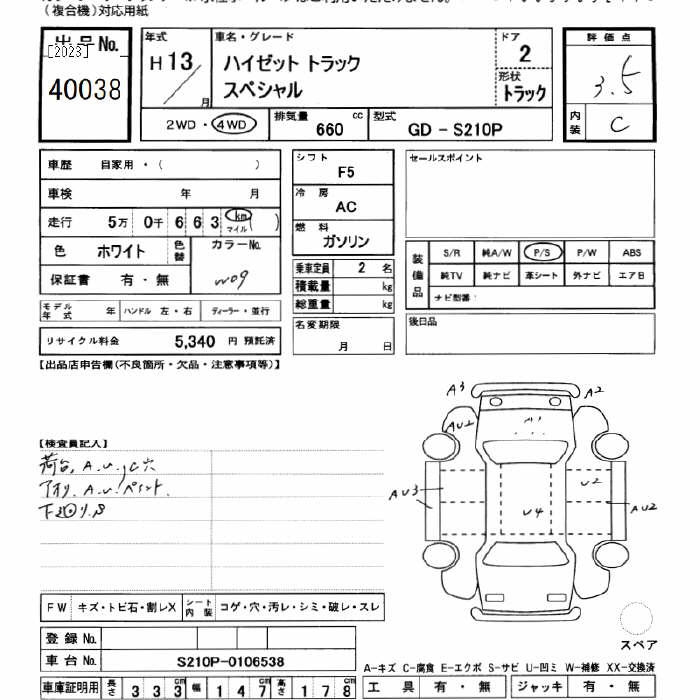 (複合機)対応用紙
出品No.
[2023]
40038
年式
H 13
月
車名・グレード
ハイゼット トラック
スペシャル
ドア
2
形状
トラック
2WD・4WD
排気量
cc
660
型式
GD - S210P
評価点
3.5
内装
C
車歴 自家用・( )
車検 年 月
走行 5万 0千 6 6 3 km マイル ( )
色 ホワイト 色替 カラーNo.
保証書 有・無 W09
モデル年式 年 ハンドル 左・右 ディーラー・並行
リサイクル料金 5,340 円 預託済
シフト
F5
冷房
AC
燃料
ガソリン
乗車定員 2 名
積載量 kg
総重量 kg
名変期限
月 日
セールスポイント
装備品
S/R 純A/W P/S P/W ABS
純TV 純ナビ 革シート 外ナビ エアB
ナビ型番:
後日品
【出品店申告欄(不良箇所・欠品・注意事項等)】
【検査員記入】
荷台、A.U.、C穴
アオリ、A.U.ペイント.
下回りS
A3
A2
AU2
A1
AU3
U2
AU2
U4
スペア
FW キズ・トビ石・割レX シート内装 コゲ・穴・汚レ・シミ・破レ・スレ
登録No.
車台No. S210P-0106538
車庫証明用 長さ 3 3 3 cm 幅 1 4 7 cm 高さ 1 7 8 cm
A-キズ C-腐食 E-エクボ S-サビ U-凹ミ W-補修 XX-交換済
工具 有・無 ジャッキ 有・無